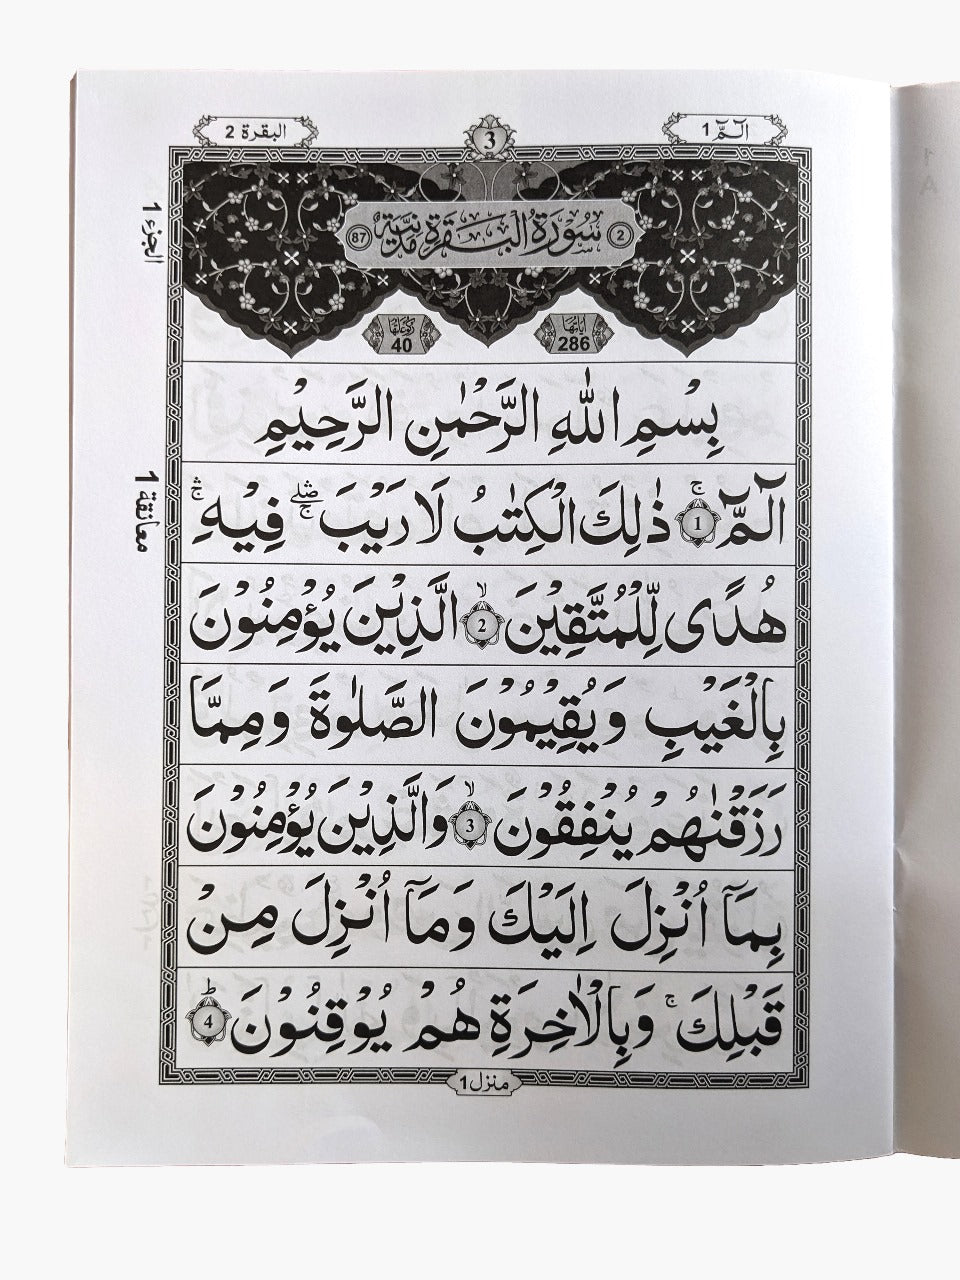 الٓمّٓ 1
3
البقرة 2
2 سُوْرَةُ الْبَقَرَةِ مَدَنِيَّةٌ 87
اٰیَاتُهَا 286
رُكُوْعَاتُهَا 40
الجزء 1
بِسْمِ اللّٰهِ الرَّحْمٰنِ الرَّحِيْمِ
الٓمّٓ ۚ 1 ذٰلِكَ الْكِتٰبُ لَا رَيْبَ ۖۛۚ فِيْهِ ۛۚ
معانقة 1
هُدًى لِّلْمُتَّقِيْنَ ۙ 2 الَّذِيْنَ يُؤْمِنُوْنَ
بِالْغَيْبِ وَيُقِيْمُوْنَ الصَّلٰوةَ وَمِمَّا
رَزَقْنٰهُمْ يُنْفِقُوْنَ ۙ 3 وَالَّذِيْنَ يُؤْمِنُوْنَ
بِمَآ اُنْزِلَ اِلَيْكَ وَمَآ اُنْزِلَ مِنْ
قَبْلِكَ ۚ وَبِالْاٰخِرَةِ هُمْ يُوْقِنُوْنَ ؕ 4
منزل 1